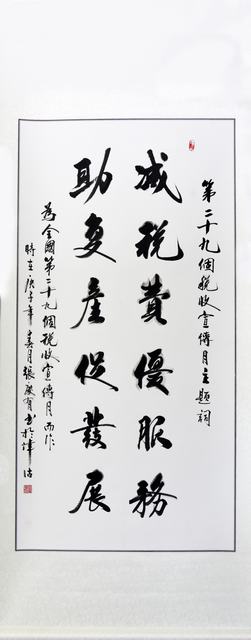 第二十九個税收宣傳月主題詞
减税費優服務
助复產促發展
為全國第二十九個税收宣傳月而作
時在庚子年春月張殿有书於津沽